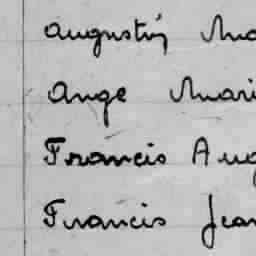 Augustin Ma
Ange Mari
Francis Aug
Francis Jean